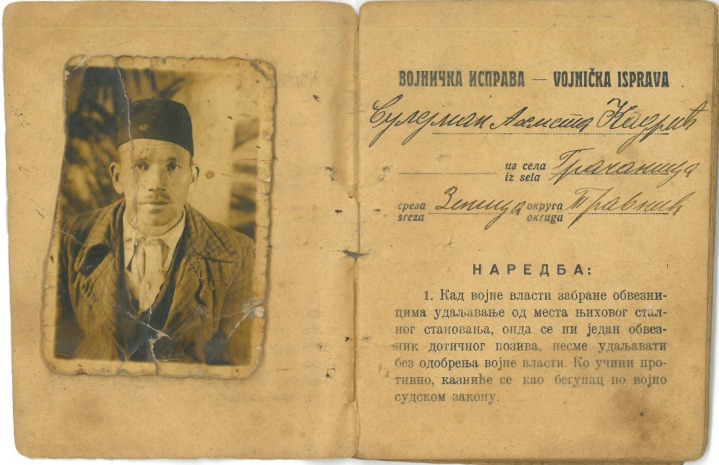 ВОЈНИЧКА ИСПРАВА — VOJNIČKA ISPRAVA
Сулејман Ахмета Кадрић
из села Грачаница
iz sela
среза Зеница округа Травник
sreza okruga
НАРЕДБА:
1. Кад војне власти забране обвезни-
цима удаљавање од места њиховог стал-
ног становања, онда се ни један обвез-
ник дотичног позива, несме удаљавати
без одобрења војне власти. Ко учини про-
тивно, казниће се као бегунац по војно
судском закону.